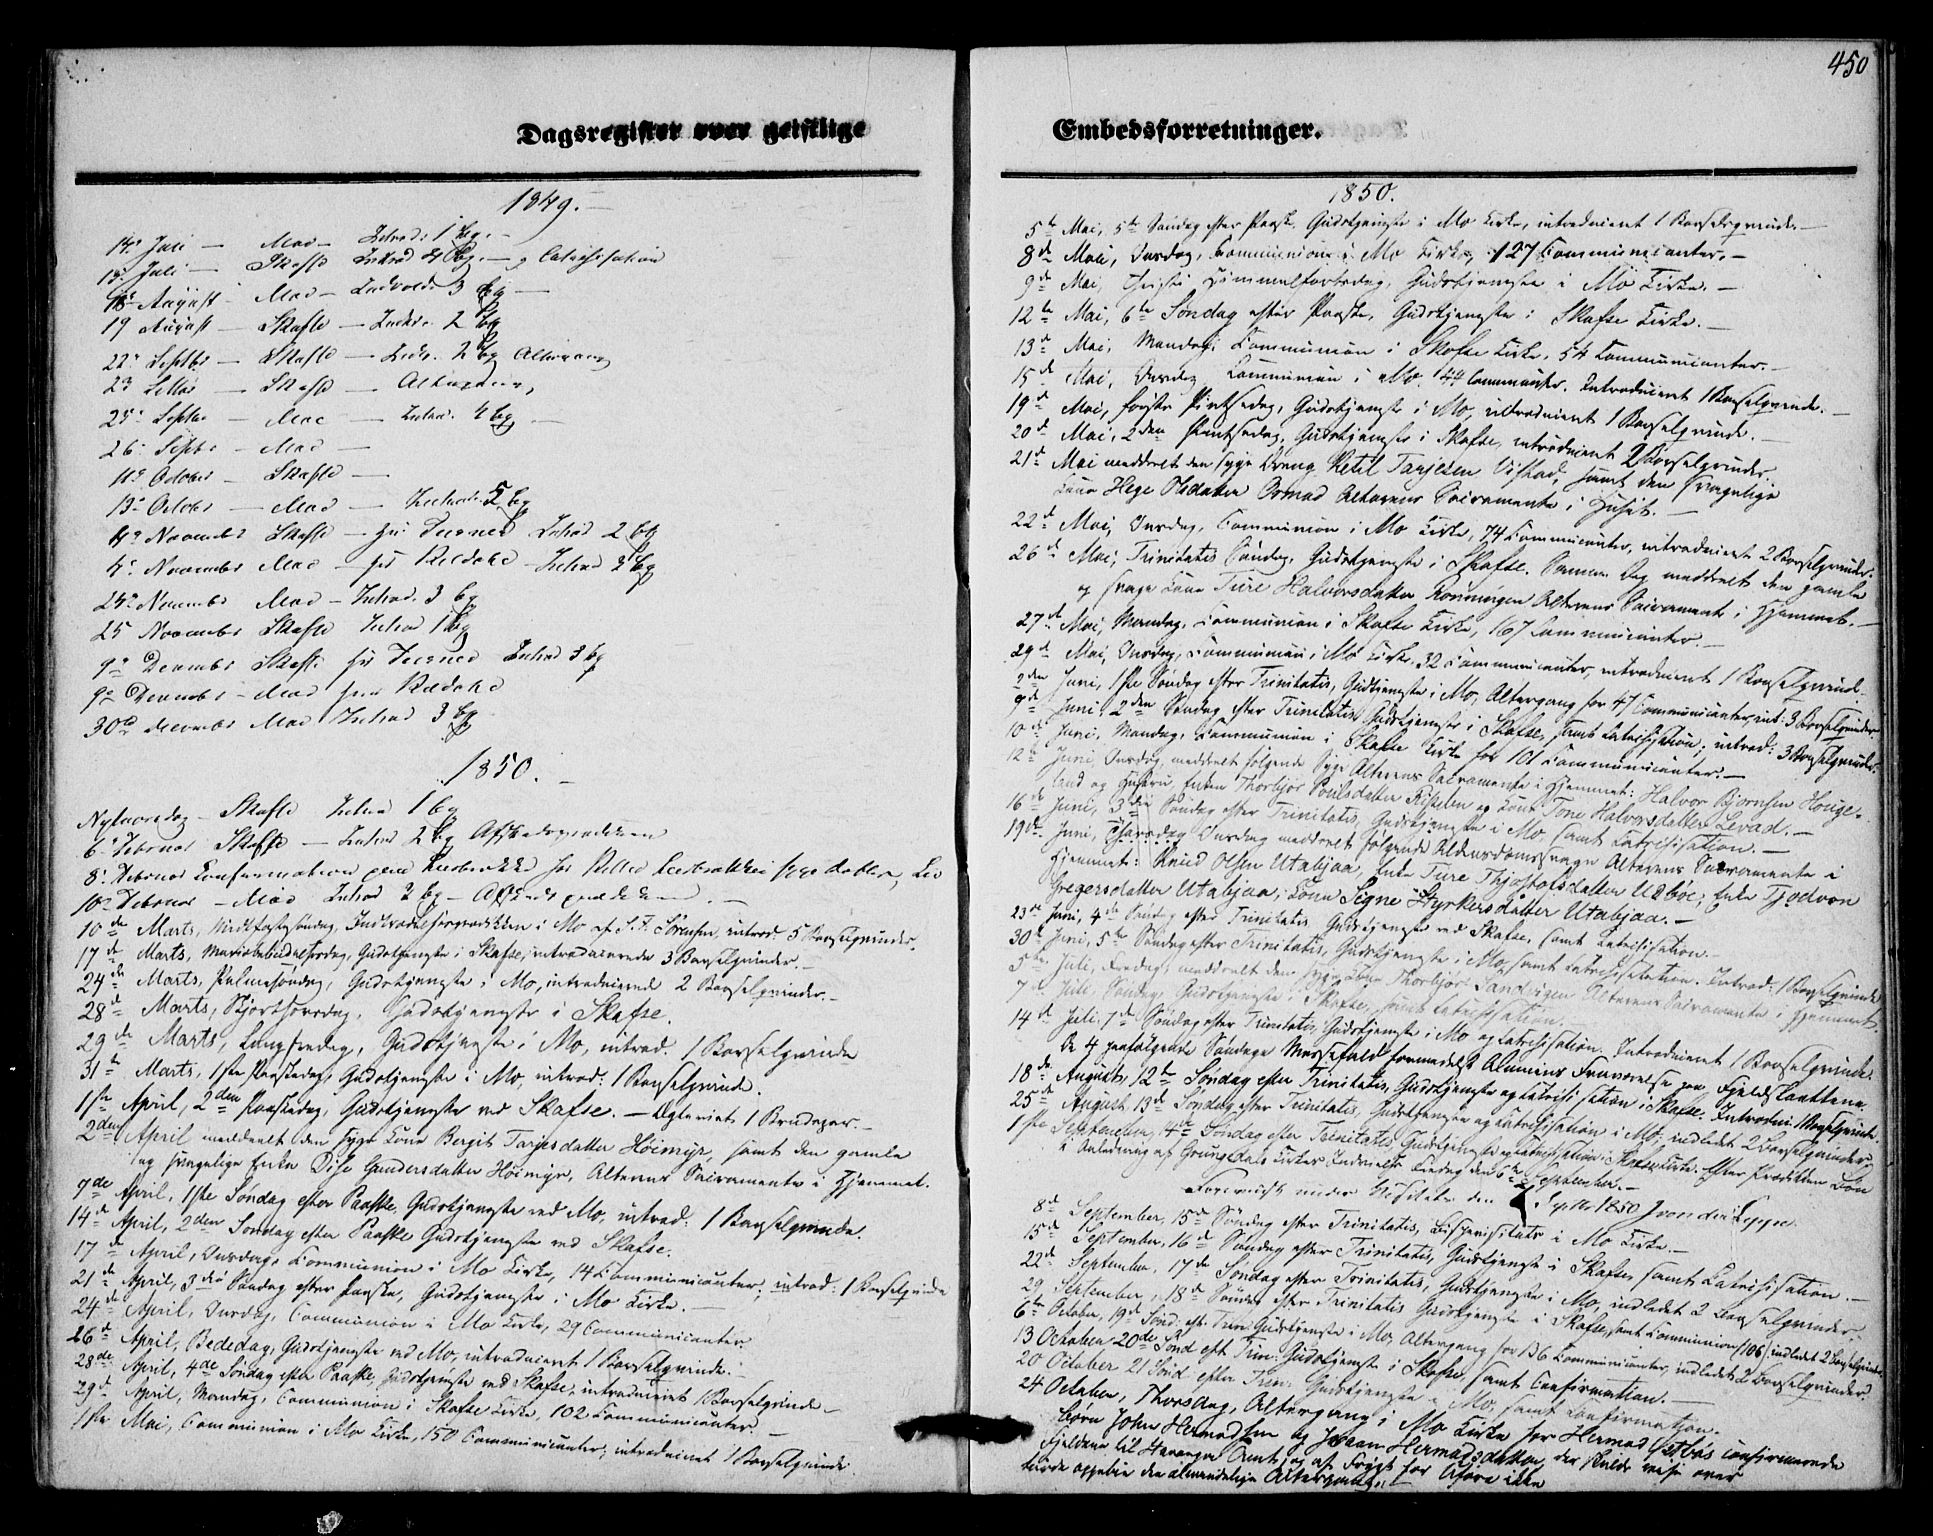 450
Dagsregister over geistlige Embedsforretninger.
1849.
Juli — Moe — Introd: 1 bq. —
Juli — Skafse Introd 4 bq. — Catechisation
August — Moe — Introd: 3 bq —
19 August — Skafse — Introd. 2 bq
22 Septbr — Skafse — Introd. 2 bq Altergang
23 Septbr — Skafse — Altergang
25 Septbr — Moe — Introd. 4 bq
26 Septbr — Moe —
October — Skafse —
October — Moe — Introd. 5 bq
November Skafse — Introd 2 bq
November Moe — Introd 3 bq
November Moe — Introd. 3 bq
25 November Skafse Introd 1 bq
9 December Skafse Introd 3 bq
9 December — Moe
30 December Moe Introd 3 bq
1850.
Nytaarsdag — Skafse Introd 1 bq
6 Februar Skafse — Introd 2 bq Afskedsprædiken
8 Februar Confirmation
10 Februar — Moe Introd 2 bq — Afskedsprædiken. —
10de Marts, Midfastesøndag, Indtrædelsesprædiken i Mo af S. F. Sörensen, introd. 5 Barselqvinder.
17de Marts, Mariæbebudelsesdag, Gudstjeneste i Skafse, introducerede 3 Barselqvinder. —
24de Marts, Palmesøndag, Gudstjeneste i Mo, introducerede 2 Barselqvinder. —
28de Marts, Skjærthorsdag, Gudstjeneste i Skafse.
29de Marts, Langfredag, Gudstjeneste i Mo, introd. 1 Barselqvinde
31te Marts, 1ste Paaskedag, Gudstjeneste i Mo, introd: 1 Barselqvinde.
1ste April, 2den Paaskedag, Gudstjeneste ved Skafse. — Ægteviet 1 Brudepar. —
2den April meddeelt den syge Kone Bergit Tarjesdatter Höimyr, samt den gamle
og svagelige Enke Dise Gundersdatter Höimyr, Alterens Sacramente i Hjemmet.
7de April, 1ste Søndag efter Paaske, Gudstjeneste ved Mo, introd: 1 Barselqvinde.
14de April, 2den Søndag efter Paaske Gudstjeneste ved Skafse.
17de April, Onsdag, Communion i Mo Kirke, 14 Communicanter; introd: 1 Barselqvinde
21de April, 3die Søndag efter Paaske, Gudstjeneste i Mo Kirke. —
24de April, Onsdag, Communion i Mo Kirke, 29 Communicanter
26de April, Bededag, Gudstjeneste ved Mo, introduceret 1 Barselqvinde. —
28de April, 4de Søndag efter Paaske, Gudstjeneste ved Skafse, introduceret 1 Barselqvinde —
29de April, Mandag, Communion i Skafse Kirke, 102 Communicanter. —
1ste Mai, Communion i Mo Kirke, 150 Communicanter, introduceret 1 Barselqvinde
1850.
5te Mai, 5te Søndag efter Paaske, Gudstjeneste i Mo Kirke, introduceret 1 Barselqvinde. —
8de Mai, Onsdag, Communion i Mo Kirke, 127 Communicanter. —
9de Mai, Christi Himmelfartsdag, Gudstjeneste i Mo Kirke. —
12te Mai, 6te Søndag efter Paaske, Gudstjeneste i Skafse Kirke. —
13de Mai, Mandag, Communion i Skafse Kirke, 54 Communicanter. —
15de Mai, Onsdag Communion i Mo. 44 Communter. Introduceret 1 Barselqvinde. —
19de Mai, første Pintsedag, Gudstjeneste i Mo, introduceret 1 Barselqvinde. —
20de Mai, 2den Pintsedag, Gudstjeneste i Skafse, introduceret 2 Barselqvinder
21de Mai meddeelt den syge Dreng Ketil Tarjesen Vistad, samt den svagelige
Kone Hege Olsdatter Alterens Sacramente i Huset. —
22de Mai, Onsdag, Communion i Mo Kirke, 74 Communicanter, introduceret 2 Barselqvinder.
26de Mai, Trinitatis Søndag, Gudstjeneste i Skafse. Samme Dag meddeelt den gamle
og svage Kone Ture Halvorsdatter Rönningen Alterens Sacramente i Hjemmet. —
27de Mai, Mandag, Communion i Skafse Kirke, 167 Communicanter. —
29de Mai, Onsdag, Communion i Mo Kirke. 32 Communicanter, introduceret 1 Barselqvinde. —
2den Juni, 1ste Søndag efter Trinitatis, Gudstjeneste i Mo, Altergang for 47 Communicanter, int: 3 Barselqvinder
9de Juni, 2den Søndag efter Trinitatis, Gudstjeneste i Skafse, samt Catechisation; introd: 3 Barselqvinder.
10de Juni, Mandag, Communion i Skafse Kirke for 101 Communicanter. —
12te Juni, Onsdag, meddeelt følgende Syge Alterens Sacramente i Hjemmet: Halvor Bjørnsen Houge-
land og Hustru, Enken Thorbjör Poulsdatter og Kone Tone Halvorsdatter Levad. —
16de Juni, 3die Søndag efter Trinitatis, Gudstjeneste i Mo samt Catechisation. —
19de Juni, Onsdag meddeelt følgende Alderdomssvage Alterens Sacramente i
Hjemmet: Knud Olsen Utabjaa, Enke Ture Thjostolsdatter, Enke Tjodvor
Gregersdatter Utabjaa, Kone Segne Styrkersdatter Utabjaa. —
23de Juni, 4de Søndag efter Trinitatis Gudstjeneste ved Skafse, samt Catechisation.
30te Juni, 5te Søndag efter Trinitatis, Gudstjeneste i Mo, samt Catechisation. Introd: 1 Barselqvinde
5te Juli, Fredag, meddeelt den syge Kone Thorbjör Sandvigen Alterens Sacramente i Hjemmet.
7de Juli, Søndag, Gudstjeneste i Skafse, samt Catechisation. —
14de Juli. 7de Søndag efter Trinitatis, Gudstjeneste i Mo og Catechisation. Introduceret 1 Barselqvinde.
De 4 paafølgende Søndage Messefald formedelst Almuens Fraværelse paa Fjeldslaattene.
18de August, 12te Søndag efter Trinitatis, Gudstjeneste og Catechisation i Skafse. Introd: 1 Barselqvinde.
25de August, 13de Søndag efter Trinitatis, Gudstjeneste og Catechisation i Mo, indledet 2 Barselqvinder.
1ste September, 14de Søndag efter Trinitatis Gudstjeneste og Catechisation i Skafse Kirke. Efter Prædiken Bøn
i Anledning af Grungedals Kirkes Indvielse Fredag den 6te September. —
Foreviist under Visitats den Septbr 1850 J von der Lippe.
8de September, 15de Søndag efter Trinitatis, Bispevisitats i Mo Kirke. —
15de September, 16de Søndag efter Trinitatis, Gudstjeneste i Skafse, samt Catechisation. —
22de September, 17de Søndag efter Trinitatis, Gudstjeneste i Mo, indledet 2 Barselqvinder.
29 September, 18de Søndag efter Trinitatis Gudstjeneste i Skafse, samt Communion (106), indledet 2 Barselqvinder
6te October, 19de Sönd. eft. Trin. Gudstjeneste i Mo, Altergang for 136 Communicanter, indledet 2 Barselqvinder
13 October 20de Sönd eft Trin: Gudstjeneste i Skafse, samt Confirmation. —
20 October 21 Sönd efter Trin: Gudstjeneste i Mo, samt Confirmation.
24 October, Thorsdag, Altergang i Mo Kirke for Hermod confirmerede
børn John Hermodsen og Joraan Hermodsdatter, der skulde reise over
Fjeldene til Stavanger Amt, og af Frygt for Uføre ikke
turde oppebie den almindelige Altergang. —